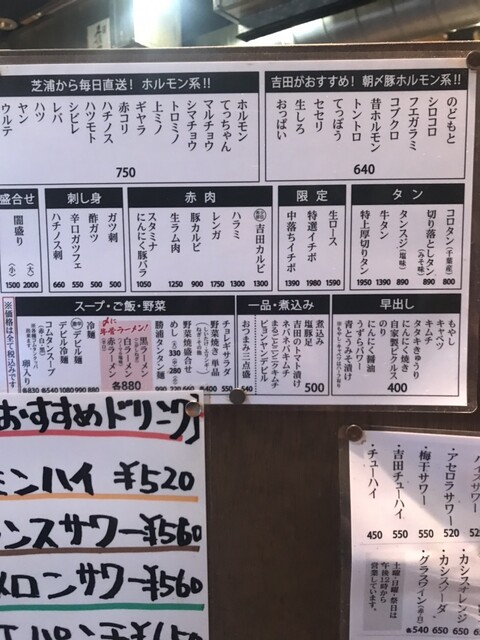 芝浦から毎日直送！ホルモン系!!
ホルモン
てっちゃん
マルチョウ
シマチョウ
トロミノ
上ミノ
ギヤラ
赤コリ
ハチノス
ハツモト
シビレ
レバ
ハツ
ヤン
ウルテ
750
吉田がおすすめ！朝〆豚ホルモン系!!
のどもと
シロコロ
フエガラミ
コブクロ
昔ホルモン
トントロ
てっぽう
セセリ
生しろ
おっぱい
640
盛合せ
闇盛り
(小) 1500
(大) 2000
刺し身
ガツ刺 500
酢ガツ 500
辛口ガツフェ 540
ハチノス刺 660
赤肉
吉田カルビ 1300
ハラミ 1300
レンガ 750
豚カルビ 900
生ラム肉 1250
スタミナにんにく豚バラ 1050
限定
生ロース 1590
特選イチボ 1980
中落ちイチボ 1390
タン
コロタン(千葉産) 800
切り落としタン(みそ味) 890
タンスジ(塩味) 890
牛タン 1390
特上厚切りタン 1950
スープ・ご飯・野菜
チョレギサラダ 540
野菜焼き 単品 各400
野菜焼盛合せ 660
めし 小220 中280 大330
勝浦タンタン麺 990
〆に牛骨ラーメン！
黒ラーメン
白ラーメン
赤ラーメン
各880
冷麺 880
デビル冷麺 990
デビルスープ 540
コムタンスープ
卵入り
一品・煮込み
煮込み
塩煮足
吉田のトマト漬け
ネバネバキムチ
まるごとにんにくキムチ
ピョンヤンデビル
500
おつまみ三点盛 550
早出し
もやし
キャベツ
キムチ
タタキきゅうり
にんにく焼き
自家製ピクルス
のり
にんにく醤油
うずらパワー
青とうみそ漬け
400
※価格は全て税込みです
おすすめドリンク
ミンハイ ¥520
ンスサワー ¥560
メロンサワー ¥560
・アセロラサワー 520
・梅干サワー 550
・吉田チューハイ 550
・チューハイ 450
・カシスオレンジ 650
・カシスソーダ 650
・グラスワイン(赤・白) 各540
土曜・日曜・祭日は
午後12時から
営業しています。